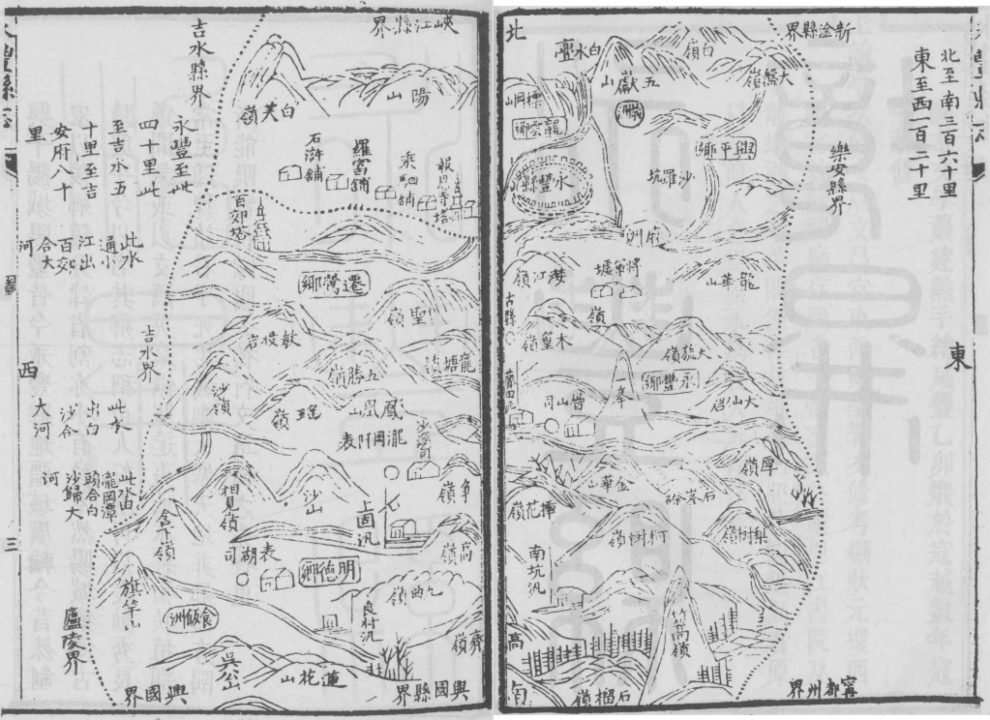 北
新淦縣界
北至南三百六十里
東至西一百二十里
白水壼
白嶺
大盤嶺
五巘山
龍雲鄉
興平鄉
樂安縣界
永豐縣
沙羅坑
府洲
港江嶺
將軍壚
龍華山
古縣
木皇嶺
嶺
大㟖嶺
永豐鄉
一峯
層山司
大仙岩
東
厚嶺
金華山
石峯
揷花嶺
柯樹嶺
梨樹嶺
南坑汛
筲箕嶺
石榴嶺
高
南
寗都州界
豐縣志
圖
三
峽江縣界
吉水縣界
陽山
白芙嶺
永豐至此
四十里此
至吉水五
十里至吉
安府八十
里
石滸舖
羅富舖
乘駟舖
報恩寺塔
百郊塔
此水
通小
江出
百郊
合大
河
遷鶯鄉
聖嶺
敖投岩
龍塘嶺
五勝嶺
吉水界
西
沙嶺
瑶嶺
鳳凰山
瀧岡阡表
沙溪司
此水
出白
沙合
大河
相見嶺
沙山
上固汛
爭嶺
此水由
瀧岡潭
頭合白
沙歸大
河
表湖司
明德鄉
高嶺
旗竿山
食飯洲
良村汛
九曲嶺
齊嶺
廬陵界
吳公山
蓮花山
興國界
興國縣界